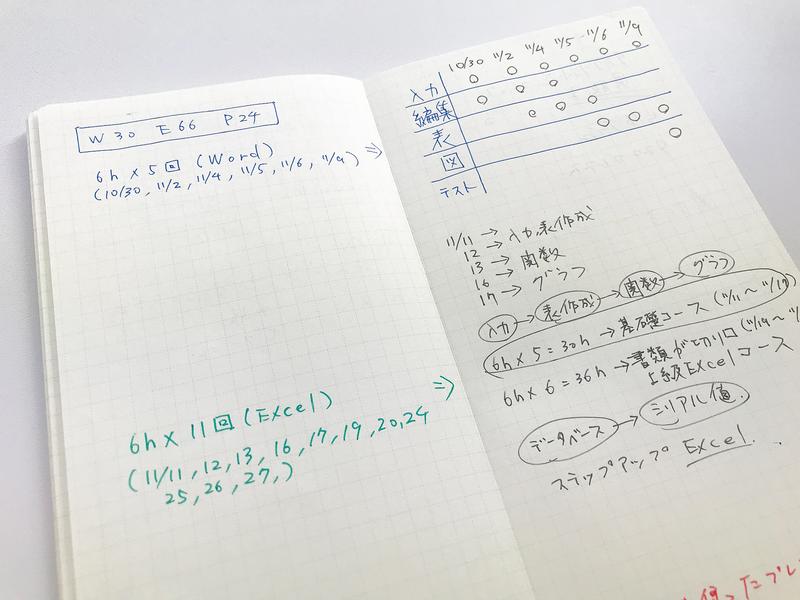 W 30 E 66 P 24
6h × 5回 (Word) ⇒
(10/30, 11/2, 11/4, 11/5, 11/6, 11/9)
6h × 11回 (Excel) ⇒
(11/11, 12, 13, 16, 17, 19, 20, 24
25, 26, 27,)
10/30 11/2 11/4 11/5 11/6 11/9
入力 ○ ○ ○ ○ ○ ○
編集 ○ ○ ○
表 ○ ○ ○
図 ○ ○ ○
テスト ○
11/11 → 入力, 表作成
12 →
13 → 関数
16 →
17 → グラフ
入力 → 表作成 → 関数 → グラフ
6h × 5 = 30h → 基礎コース (11/11〜11/17)
6h × 6 = 36h → 書類が切り口 (11/19〜11/
上級Excelコース
データベース → シリアル値.
ステップアップ Excel.